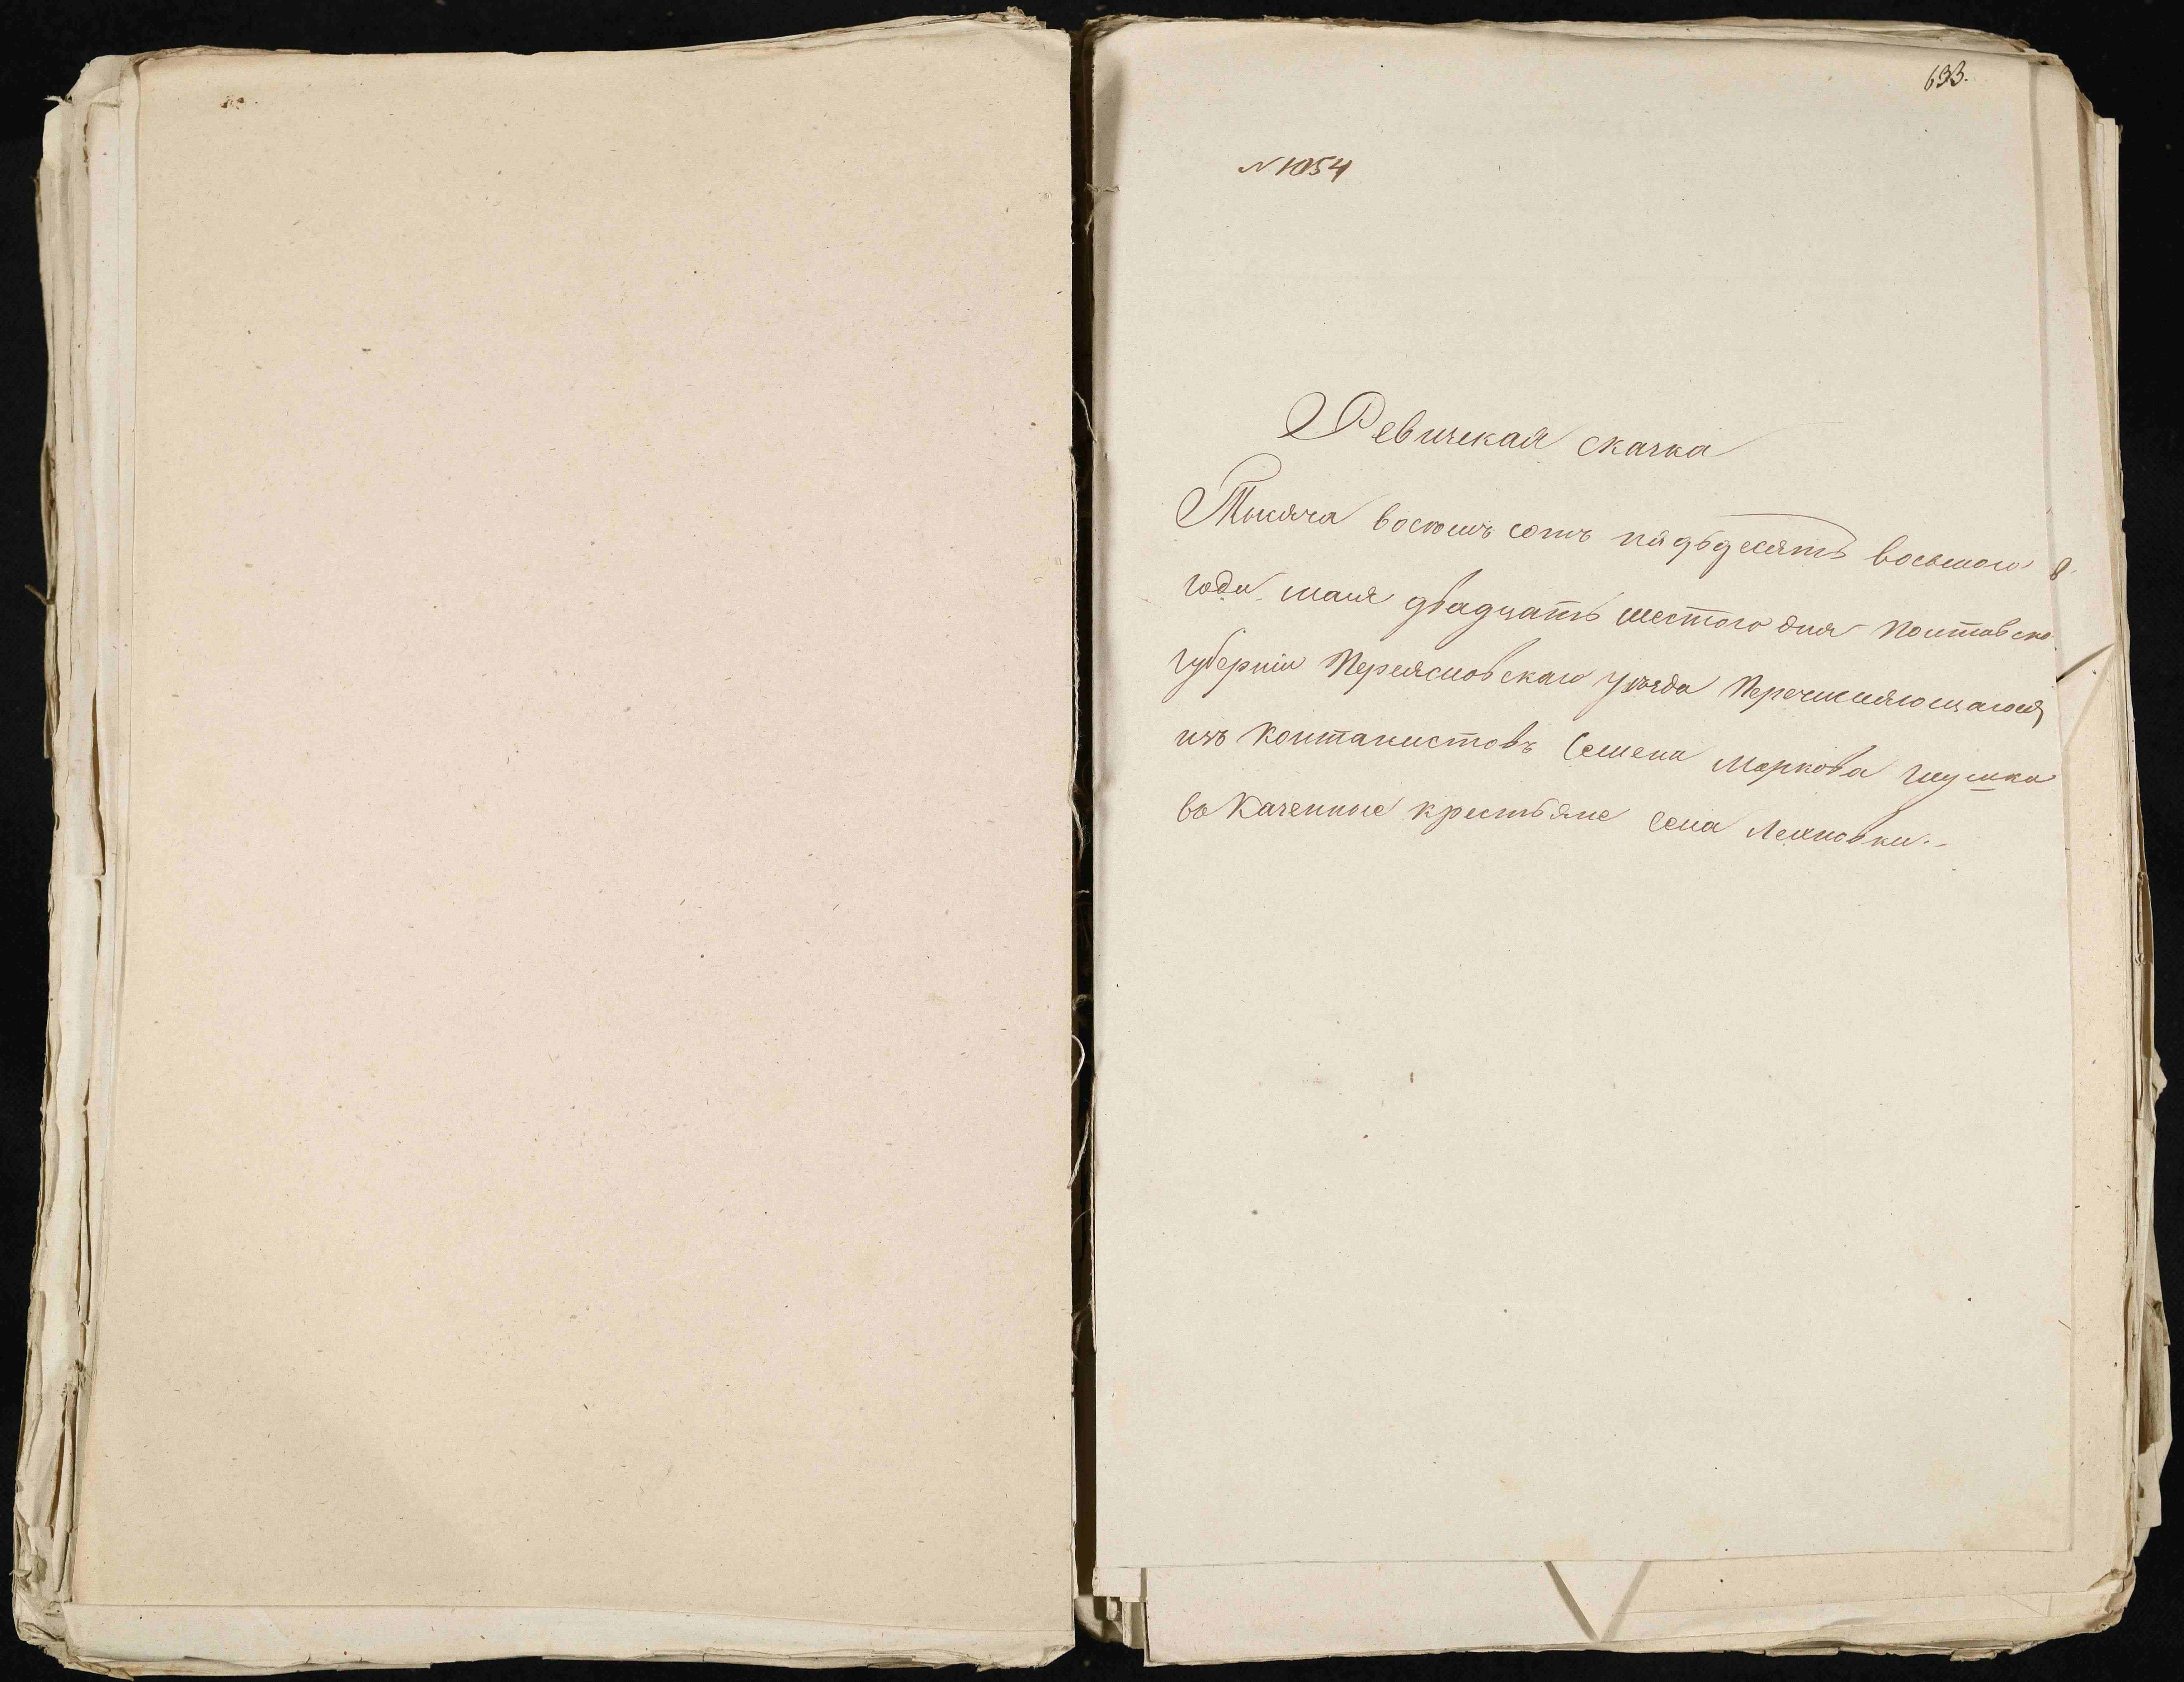 633.
№ 1054
Ревизская сказка
Тысяча восюмъ сотъ пядьдесятъ восьмого
года мая двадцать шестого дня Полтавско
губернии Переясловскаго уѣзда Перечисляющагося
изъ Контанистовъ Семена Маркова
въ Казенные крестьяне села Лехновки.